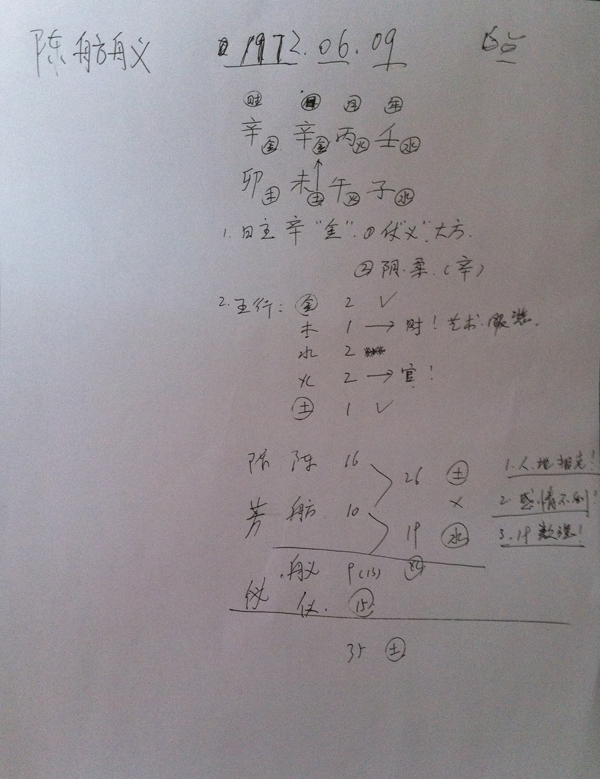 陈舫舣 1972.06.09
时 日 月 年
辛金 辛金 丙火 壬水
卯土 未土 午火 子水
1. 日主 辛“金”. ①仗“义”. 大方.
②阴.柔.(辛)
2. 五行: 金 2 ✓
木 1 → 财! 艺术.服装.
水 2
火 2 → 官!
土 1 ✓
陈 陈 16
26 土 1.人.地相克!
芳 舫 10 × 2.感情不利!
19 水 3.19数理!
.舣 9(15)
仪 仪. 15
35 土